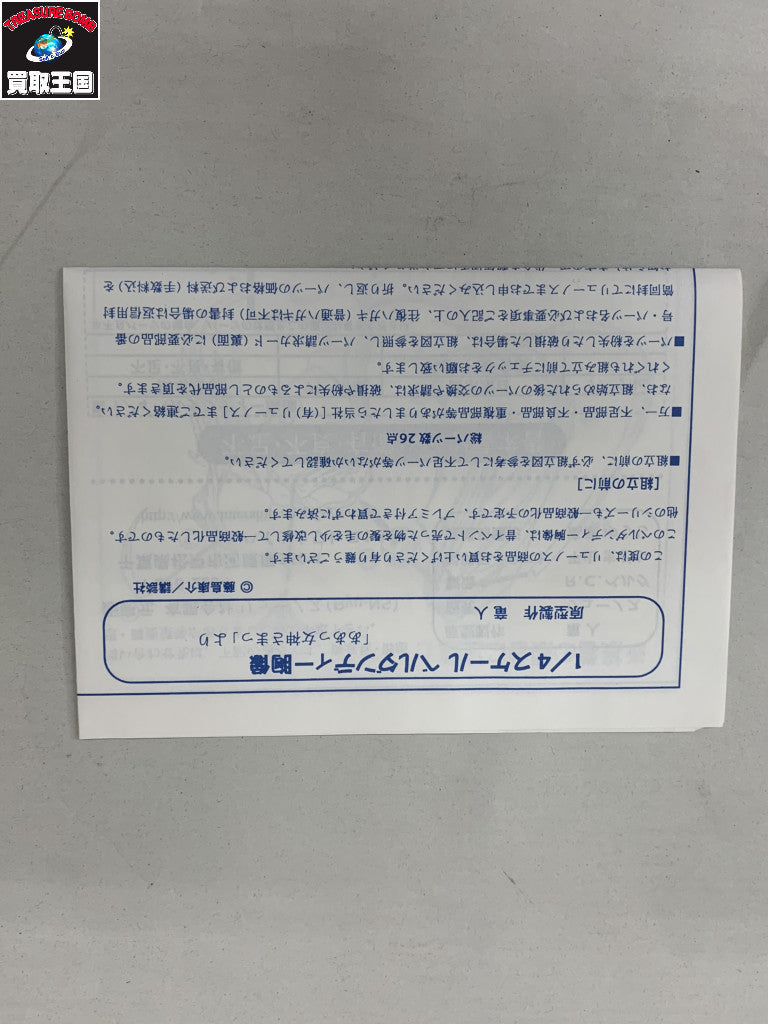 TREASURE BOMB
買取王国
1/4スケール ベルダンディー胸像
「ああっ女神さまっ」より
原型製作 竜人
© 藤島康介/講談社
この度は、リューノスの商品をお買い上げくださり有り難うございます。
このベルダンディー胸像は、昔イベントで売った物を髪の毛を少し改修して一般商品化したものです。
他のシリーズも一般商品化の予定です、プレミアム付きで買わずに済みます。
[組立の前に]
■組立の前に、必ず組立図を参考にして不足パーツ等がないか確認してください。
総パーツ数26点
■万一、不足部品・不良部品・重複部品等がありましたら当社[(有)リューノス]までご連絡ください。
なお、組立始められた後のパーツの交換や請求は、破損や紛失によるものとし部品代を頂きます。
くれぐれも組み立て前にチェックをお願い致します。
■パーツを紛失したり破損した場合は、組立図を参照し、パーツ請求カード(裏面)に必要部品の番
号・パーツ名および必要事項をご記入の上、往復ハガキ(普通ハガキは不可)封書の場合は返信用封
筒同封にてリューノスまでお申し込みください。折り返し、パーツの価格および送料(手数料込)を